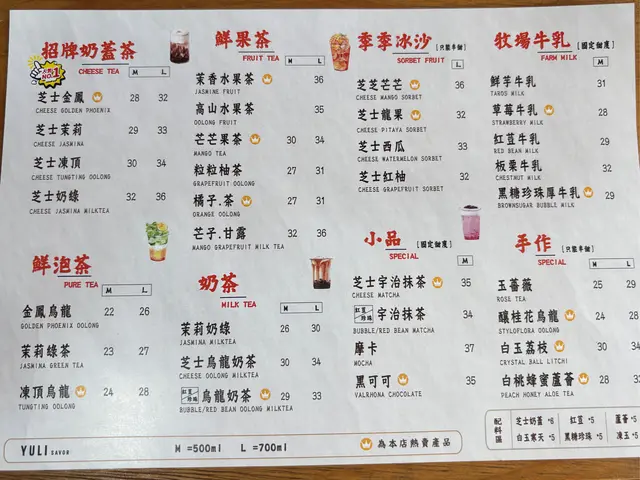 招牌奶蓋茶
CHEESE TEA M L
人氣 NO.1
芝士金鳳 28 32
CHEESE GOLDEN PHOENIX
芝士茉莉 29 33
CHEESE JASMINA
芝士凍頂 30 34
CHEESE TUNGTING OOLONG
芝士奶綠 32 36
CHEESE JASMINA MILKTEA
鮮泡茶
PURE TEA M L
金鳳烏龍 22 26
GOLDEN PHOENIX OOLONG
茉莉綠茶 23 27
JASMINA GREEN TEA
凍頂烏龍 24 28
TUNGTING OOLONG
鮮果茶
FRUIT TEA M L
茉香水果茶 36
JASMINE FRUIT
高山水果茶 35
OOLONG FRUIT
芒芒果茶 30 34
MANGO TEA
粒粒柚茶 27 31
GRAPEFRUIT OOLONG
橘子.茶 27 31
ORANGE OOLONG
芒子.甘露 32 36
MANGO GRAPEFRUIT MILK TEA
奶茶
MILK TEA M L
茉莉奶綠 26 30
JASMINA MILKTEA
芝士烏龍奶茶 30 34
CHEESE OOLONG MILKTEA
紅豆/珍珠 烏龍奶茶 29 33
BUBBLE/RED BEAN OOLONG MILKTEA
季季冰沙 [只能半甜]
SORBET FRUIT L
芝芝芒芒 36
CHEESE MANGO SORBET
芝士龍果 32
CHEESE PITAYA SORBET
芝士西瓜 33
CHEESE WATERMELON SORBET
芝士紅柚 32
CHEESE GRAPEFRUIT SORBET
小品 [固定甜度]
SPECIAL L
芝士宇治抹茶 35
CHEESE MATCHA
紅豆/珍珠 宇治抹茶 34
BUBBLE/RED BEAN MATCHA
摩卡 37
MOCHA
黑可可 35
VALRHONA CHOCOLATE
牧場牛乳 [固定甜度]
FARM MILK
鮮芋牛乳 31
TAROS MILK
草莓牛乳 28
STRAWBERRY MILK
紅荳牛乳 29
RED BEAN MILK
板栗牛乳 28
CHESTNUT MILK
黑糖珍珠厚牛乳 29
BROWNSUGAR BUBBLE MILK
手作 [只能半甜]
SPECIAL M L
玉薔薇 25 29
ROSE TEA
釀桂花烏龍 24 28
STYLOFLORA OOLONG
白玉荔枝 30 34
CRYSTAL BALL LITCHI
白桃蜂蜜蘆薈 28 33
PEACH HONEY ALOE TEA
配料區
芝士奶蓋 *6 紅荳 *5 蘆薈 *5
白玉寒天 *5 黑糖珍珠 *5 凍玉 *5
YULI SAVOR M =500ml L =700ml 為本店熱賣產品